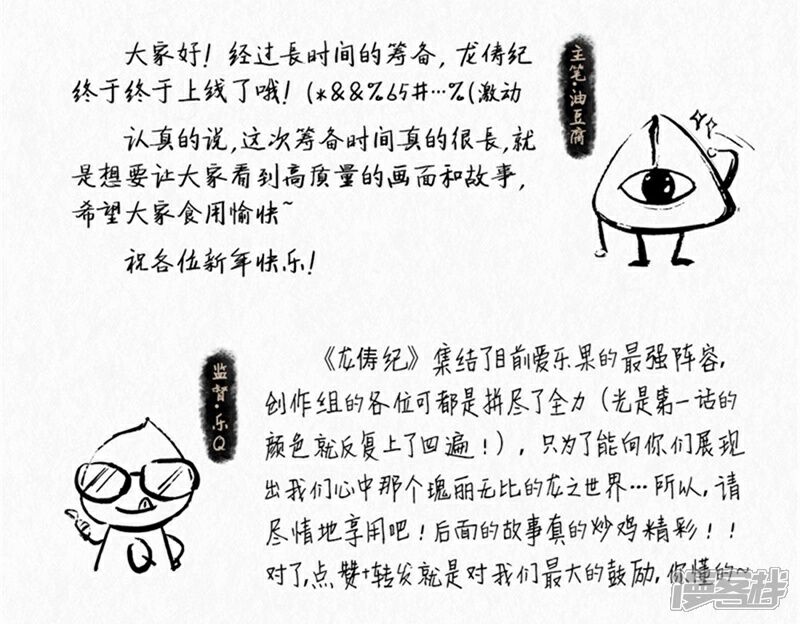 大家好！经过長时间的筹备，龙俦纪
终于终于上线了哦！(*&&%65#…%(激动
认真的说，这次筹备时间真的很長，就
是想要让大家看到高质量的画面和故事，
希望大家食用愉快~
祝各位新年快乐！
主笔·油豆腐
《龙俦纪》集结了目前爱乐果的最强阵容，
创作组的各位可都是拼尽了全力（光是第一话的
颜色就反复上了四遍！），只为了能向你们展现
出我们心中那个瑰丽无比的龙之世界…所以，请
尽情地享用吧！后面的故事真的炒鸡精彩！！
对了，点赞+转发就是对我们最大的鼓励，你懂的~
监督·乐Q
Q
漫客栈